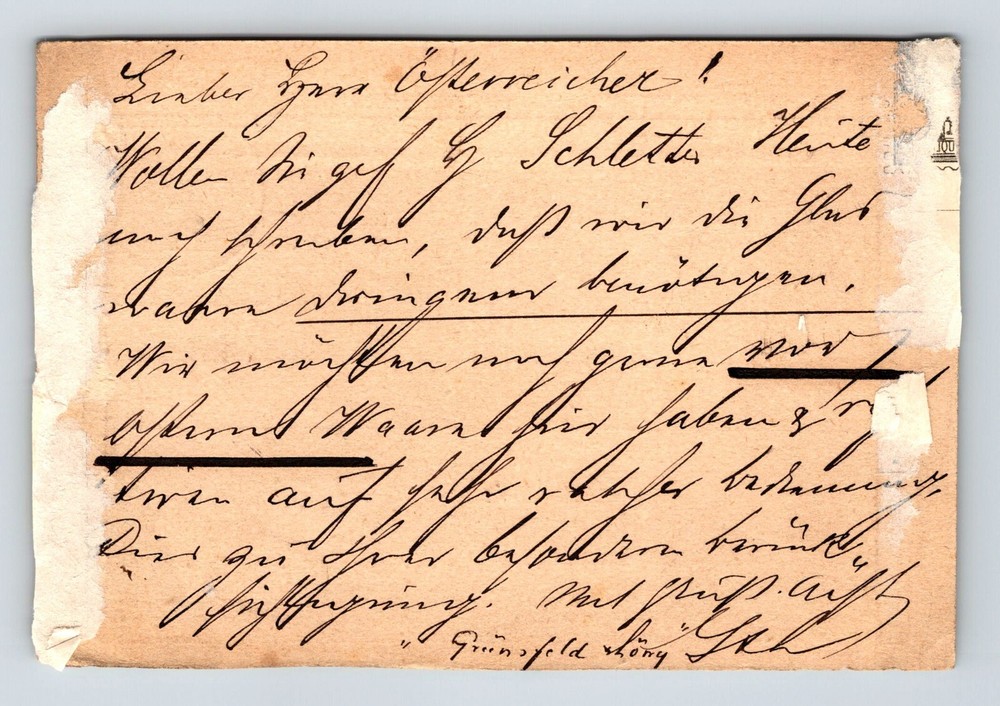 Lieber Herr Österreicher!
Wollen Sie gef H Schletter Heute
noch schreiben, daß wir die Glas
waare dringend benötigen.
Wir möchten noch gerne vor
Ostern Waare hier haben &
auf sehr rascher bedienung.
Dies zu Ihrer besonderen berück
sichtigung. Mit Gruß
"Grünsfeld